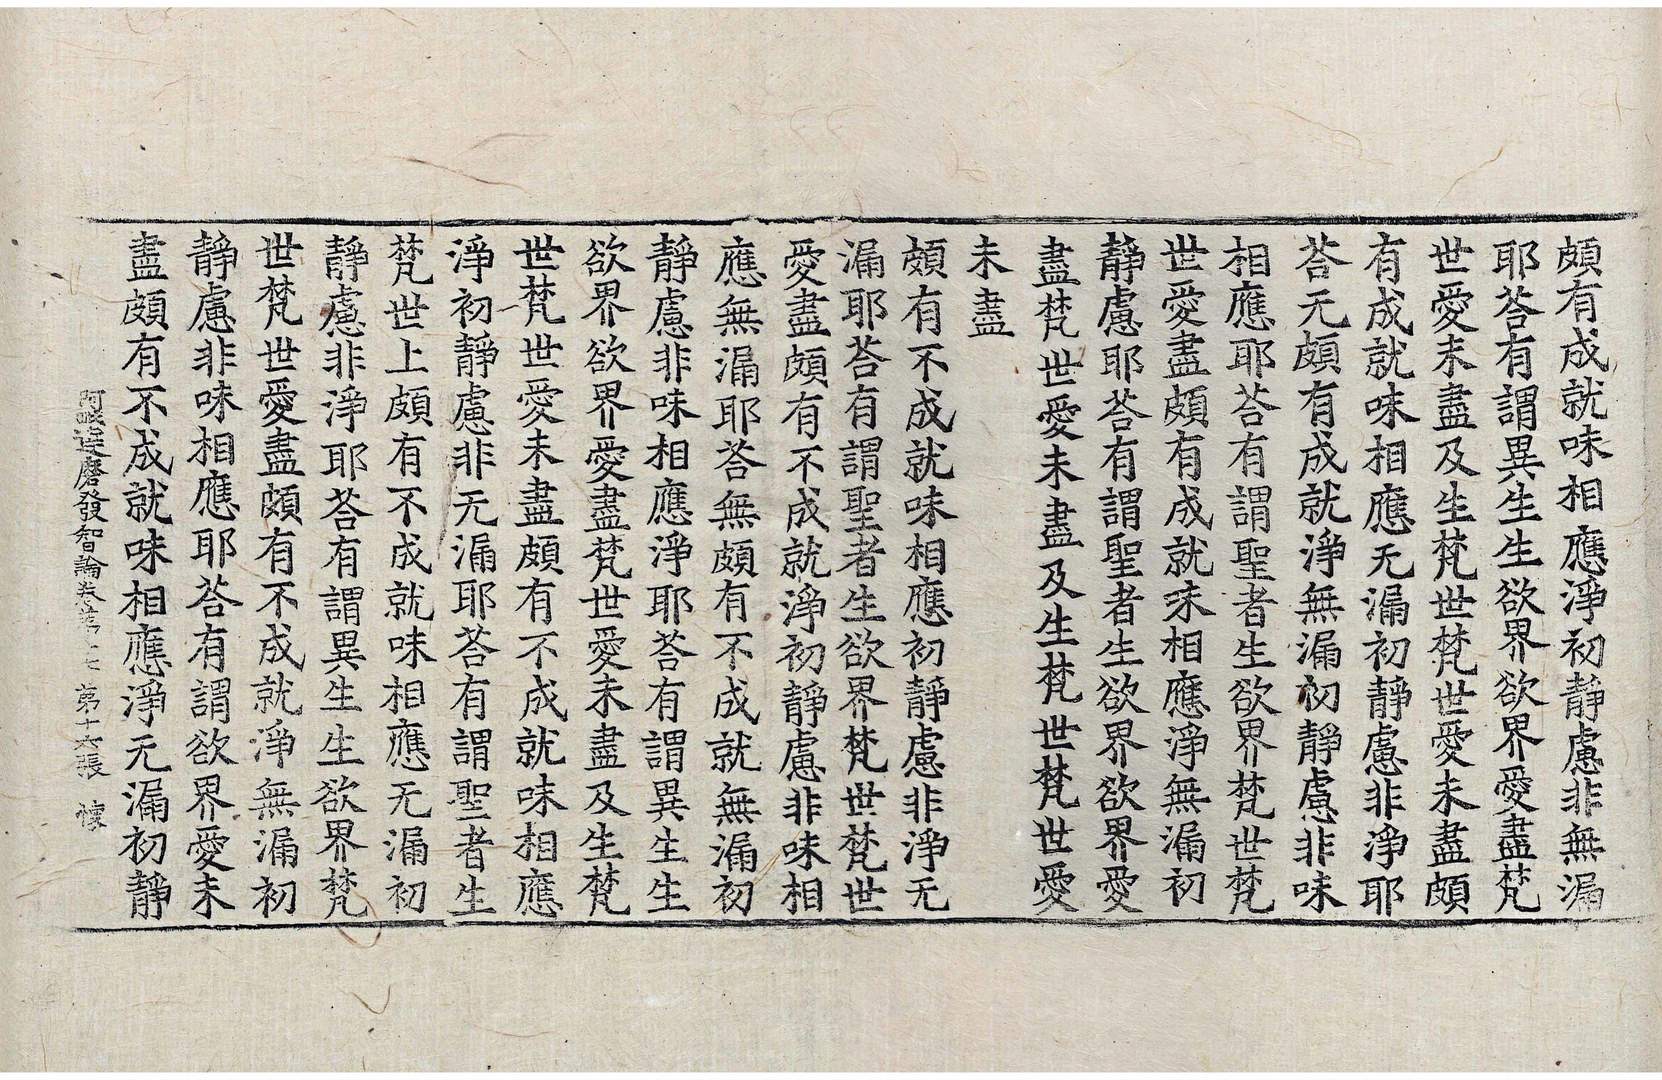 頗有成就味相應淨初靜慮非無漏
耶荅有謂異生生欲界欲界愛盡梵
世愛未盡及生梵世梵世愛未盡頗
有成就味相應无漏初靜慮非淨耶
荅无頗有成就淨無漏初靜慮非味
相應耶荅有謂聖者生欲界梵世梵
世愛盡頗有成就味相應淨無漏初
靜慮耶荅有謂聖者生欲界欲界愛
盡梵世愛未盡及生梵世梵世愛
未盡
頗有不成就味相應初靜慮非淨无
漏耶荅有謂聖者生欲界梵世梵世
愛盡頗有不成就淨初靜慮非味相
應無漏耶荅無頗有不成就無漏初
靜慮非味相應淨耶荅有謂異生生
欲界欲界愛盡梵世愛未盡及生梵
世梵世愛未盡頗有不成就味相應
淨初靜慮非无漏耶荅有謂聖者生
梵世上頗有不成就味相應无漏初
靜慮非淨耶荅有謂異生生欲界梵
世梵世愛盡頗有不成就淨無漏初
靜慮非味相應耶荅有謂欲界愛未
盡頗有不成就味相應淨无漏初靜
阿毗達磨發智論卷第十七 第十六張 懷